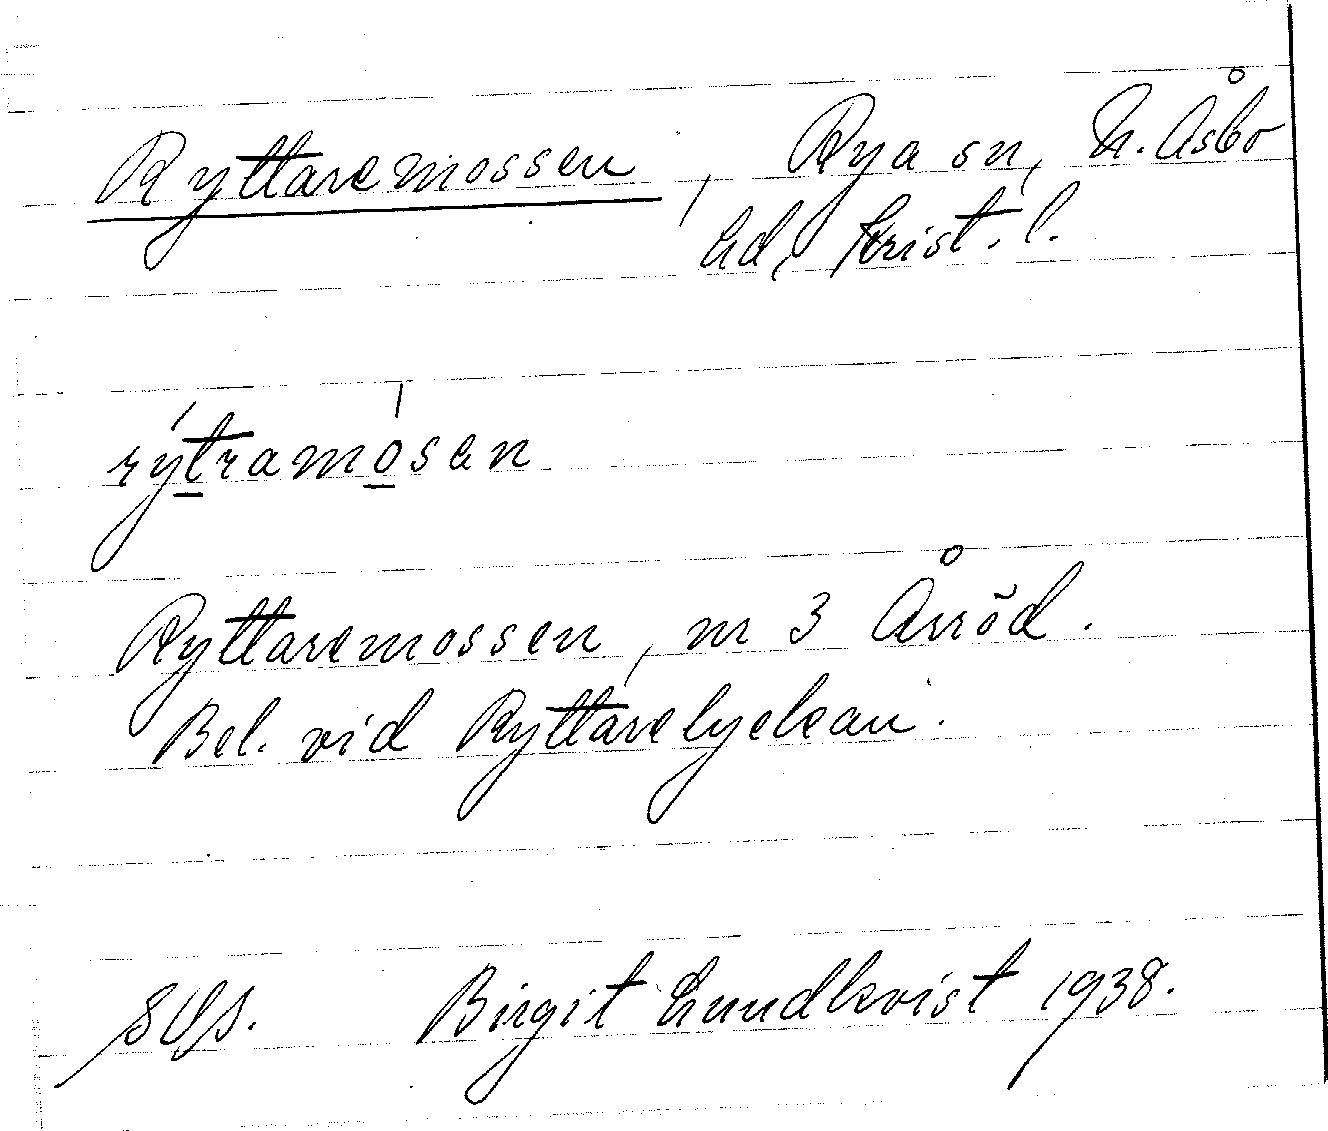 Ryttaremossen, Rya sn, N. Åsbo
hd, Krist. l.
rýtramósen
Ryttaremossen, nr 3 Årröd.
Bel. vid Ryttarelyckan.
SOS. Birgit Lundkvist 1938.